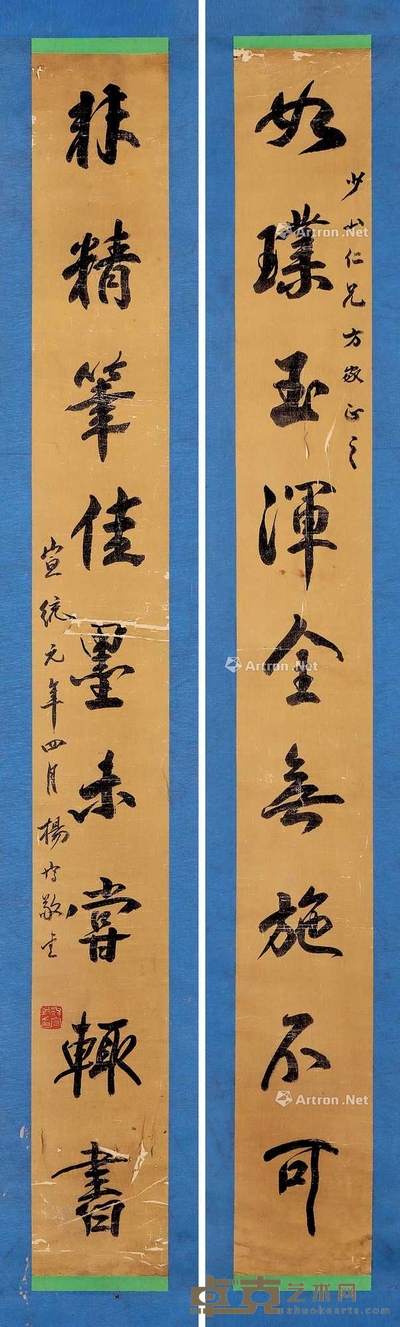 如璞玉渾金無施不可
少山仁兄方家正之
非精筆佳墨未嘗輒書
宣統元年四月楊守敬書
Artron.Net
Artron.Net
Artron.Net
卓克艺术网
zhuokearts.com